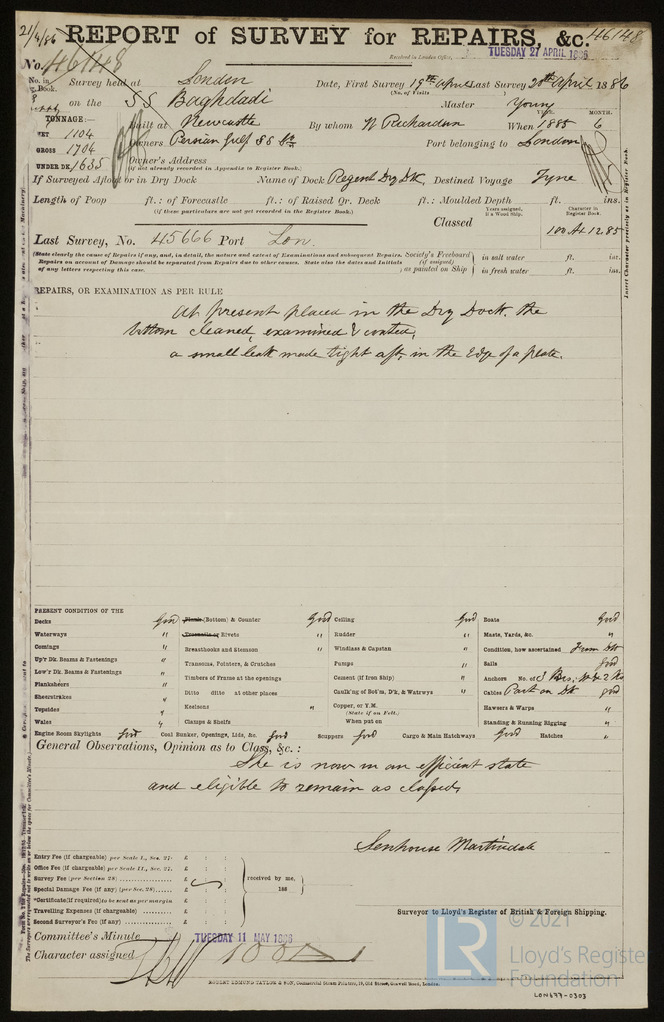 21/4/86 REPORT of SURVEY for REPAIRS, &c. 46148
Received in London Office, TUESDAY 27 APRIL 1886
No. 46148
No. in Reg. Book. Survey held at London Date, First Survey 19th April Last Survey 20th April 1886
(No. of Visits
on the SS Baghdadi Master Young
TONNAGE: Built at Newcastle By whom N Richardson When 1885 YEAR. MONTH. 6
NET 1104
GROSS 1704 Owners Persian Gulf SS Co Port belonging to London
UNDER DK. 1635 Owner's Address
(if not already recorded in Appendix to Register Book.)
If Surveyed Afloat or in Dry Dock Name of Dock Regent Dry Dk. Destined Voyage Tyne
Length of Poop ft.: of Forecastle ft.: of Raised Qr. Deck ft.: Moulded Depth ft. ins.
(if these particulars are not yet recorded in the Register Book.)
Years assigned, if a Wood Ship. Character in Register Book.
Classed 100 A1 12 85
Last Survey, No. 45666 Port Lon.
(State clearly the cause of Repairs if any, and, in detail, the nature and extent of Examinations and subsequent Repairs.
Repairs on account of Damage should be separated from Repairs due to other causes. State also the dates and Initials
of any letters respecting this case.
Society's Freeboard (if assigned) as painted on Ship in salt water ft. ins.
in fresh water ft. ins.
REPAIRS, OR EXAMINATION AS PER RULE
At present placed in the Dry Dock, the
bottom cleaned, examined & coated,
a small leak made tight aft, in the Edge of a plate.
PRESENT CONDITION OF THE
Decks Good Planks (Bottom) & Counter Good Ceiling Good Boats Good
Waterways " Treenails or Rivets " Rudder " Masts, Yards, &c. "
Comings " Breasthooks and Stemson Windlass & Capstan " Condition, how ascertained From Dk
Up'r Dk. Beams & Fastenings " Transoms, Pointers, & Crutches Pumps " Sails good
Low'r Dk. Beams & Fastenings " Timbers of Frame at the openings Cement (if Iron Ship) " Anchors No. of 3 Brs.,
Planksheers " Ditto ditto at other places Caulk'ng of Bot'm, D'k, & Waterwys " Cables Part on Dk good
Sheerstrakes " Keelsons " Copper, or Y.M. Hawsers & Warps "
(State if on Felt.)
Topsides " Clamps & Shelfs When put on Standing & Running Rigging "
Wales "
Engine Room Skylights good Coal Bunker, Openings, Lids, &c. good Scuppers good Cargo & Main Hatchways Good Hatches "
General Observations, Opinion as to Class, &c.:
She is now in an efficient state
and eligible to remain as classed.
Senhouse Martindale
Surveyor to Lloyd's Register of British & Foreign Shipping.
Entry Fee (if chargeable) per Scale I., Sec. 27. £ : :
Office Fee (if chargeable) per Scale II., Sec. 27. £ : :
Survey Fee (per Section 28) £ : :
Special Damage Fee (if any) (per Sec. 28) £ : :
*Certificate (if required) to be sent as per margin £ : :
Travelling Expenses (if chargeable) £ : :
Second Surveyor's Fee (if any) £ : :
received by me,
188
Committee's Minute TUESDAY 11 MAY 1886
Character assigned 100 A 1
ROBERT EDMUND TAYLOR & SON, Commercial Steam Printers, 19, Old Street, Goswell Road, London.
© 2021
LR
Lloyd's Register
Foundation
LON677-0303